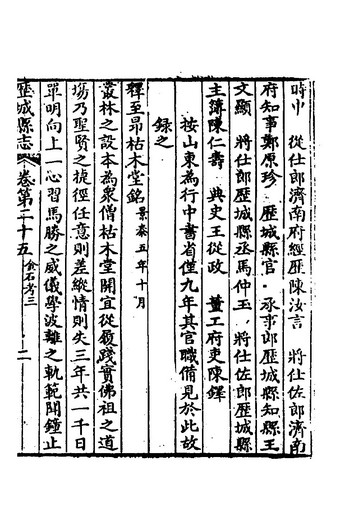 時中　從仕郎濟南府經歷陳汝言　將仕佐郎濟南
府知事鄭原珍　歷城縣官　承事郎歷城縣知縣王
文顯　將仕郎歷城縣丞馬仲玉　將仕佐郎歷城縣
主簿陳仁壽　典史王從政　董工府吏陳鐸
按山東為行中書省僅九年其官職備見於此故
錄之
釋至昻枯木堂銘 景泰五年十月
叢林之設本為衆僧枯木堂開宜從履踐實佛祖之道
場乃聖賢之捷徑任意則差縱情則失三年共一千日
單明向上一心習馬勝之威儀學波離之軌範聞鐘止
歷城縣志　卷第二十五 金石考三　二